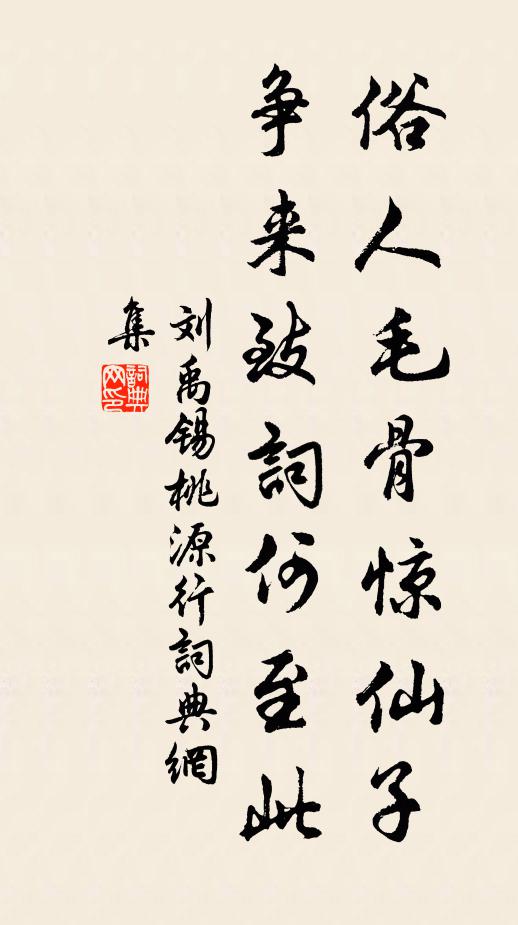 俗人毛骨惊仙子
争来致詞何至此
刘禹锡桃源行詞典網
集
詞典
网印